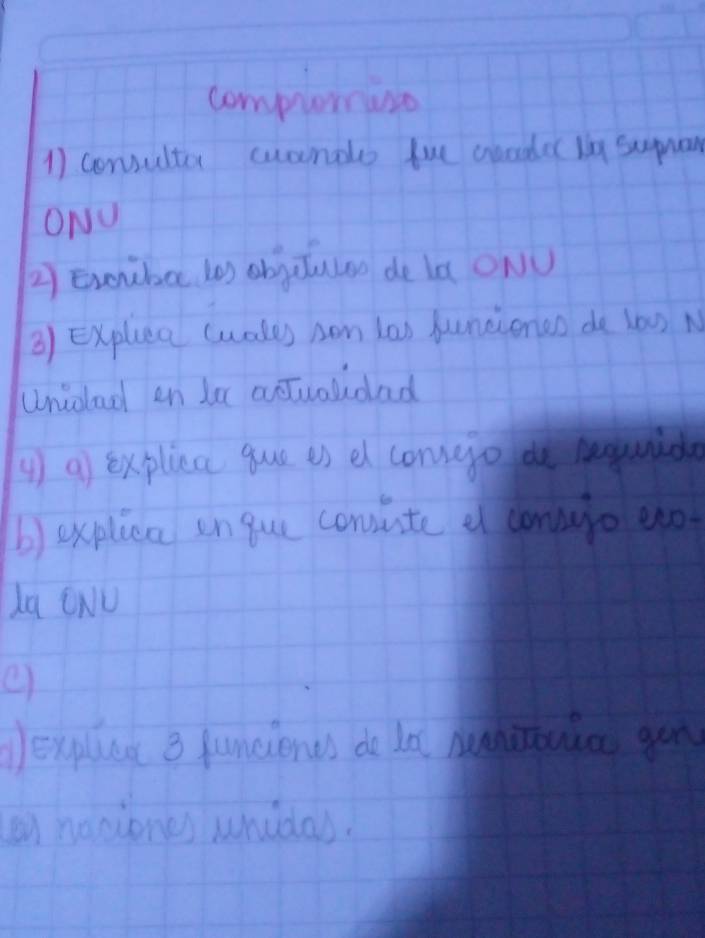 compromiso
1) consulta cuando fue creada la supran
ONU
2) Escriba los objetivos de la ONU
3) Explica cuales son las funciones de las N
Unidad en la actualidad
4) a) explica que es el consejo de segurida
b) explica en que consiste el consejo eco-
la ONU
c)
d) Explica 3 funciones de la secretaria gen
las naciones unidas.